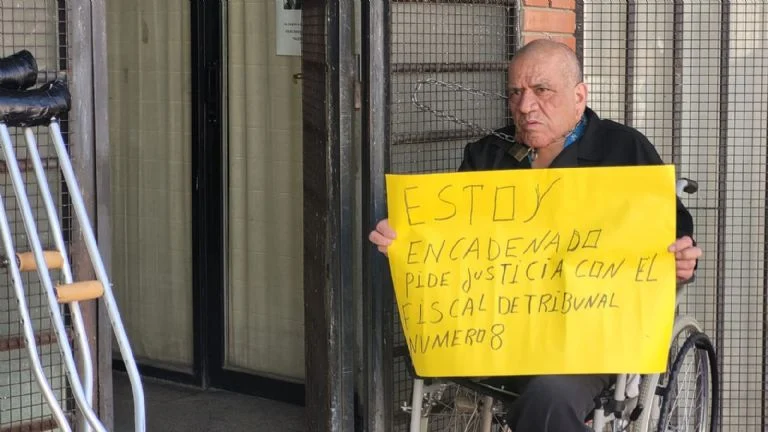 ESTOY
ENCADENADO
PIDE JUSTICIA CON EL
FISCAL DE TRIBUNAL
NUMERO 8